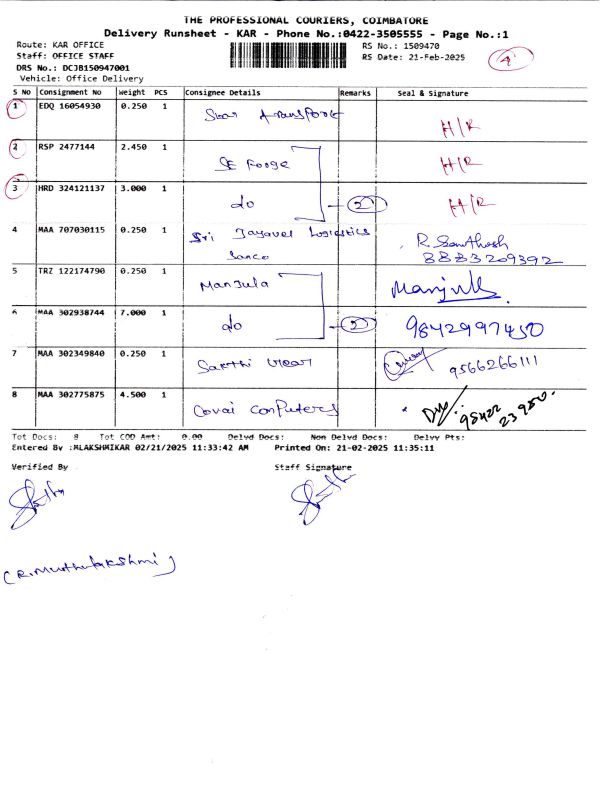 THE PROFESSIONAL COURIERS, COIMBATORE
Delivery Runsheet - KAR - Phone No.:0422-3505555 - Page No.:1
Route: KAR OFFICE
Staff: OFFICE STAFF
DRS No.: DCJB150947001
Vehicle: Office Delivery
RS No.: 1509470
RS Date: 21-Feb-2025
S No Consignment No Weight PCS Consignee Details Remarks Seal & Signature
1 EDQ 16054930 0.250 1 Star Transport H/R
2 RSP 2477144 2.450 1 SE Forge H/R
3 HRD 324121137 3.000 1 do 2 H/R
4 MAA 707030115 0.250 1 Sri Jayavel Logistics
R. Santhosh
8883209392
5 TRZ 122174790 0.250 1 Manjula
6 MAA 302938744 7.000 1 do 2 9842997450
7 MAA 302349840 0.250 1 Sakthi Wear 9566266111
8 MAA 302775875 4.500 1 Covai Computers
98422
23950
Tot Docs: 8 Tot COD Amt: 0.00 Delvd Docs: Non Delvd Docs: Delvy Pts:
Entered By :MLAKSHMIKAR 02/21/2025 11:33:42 AM Printed On: 21-02-2025 11:35:11
Verified By Staff Signature
(R. Muthulakshmi)